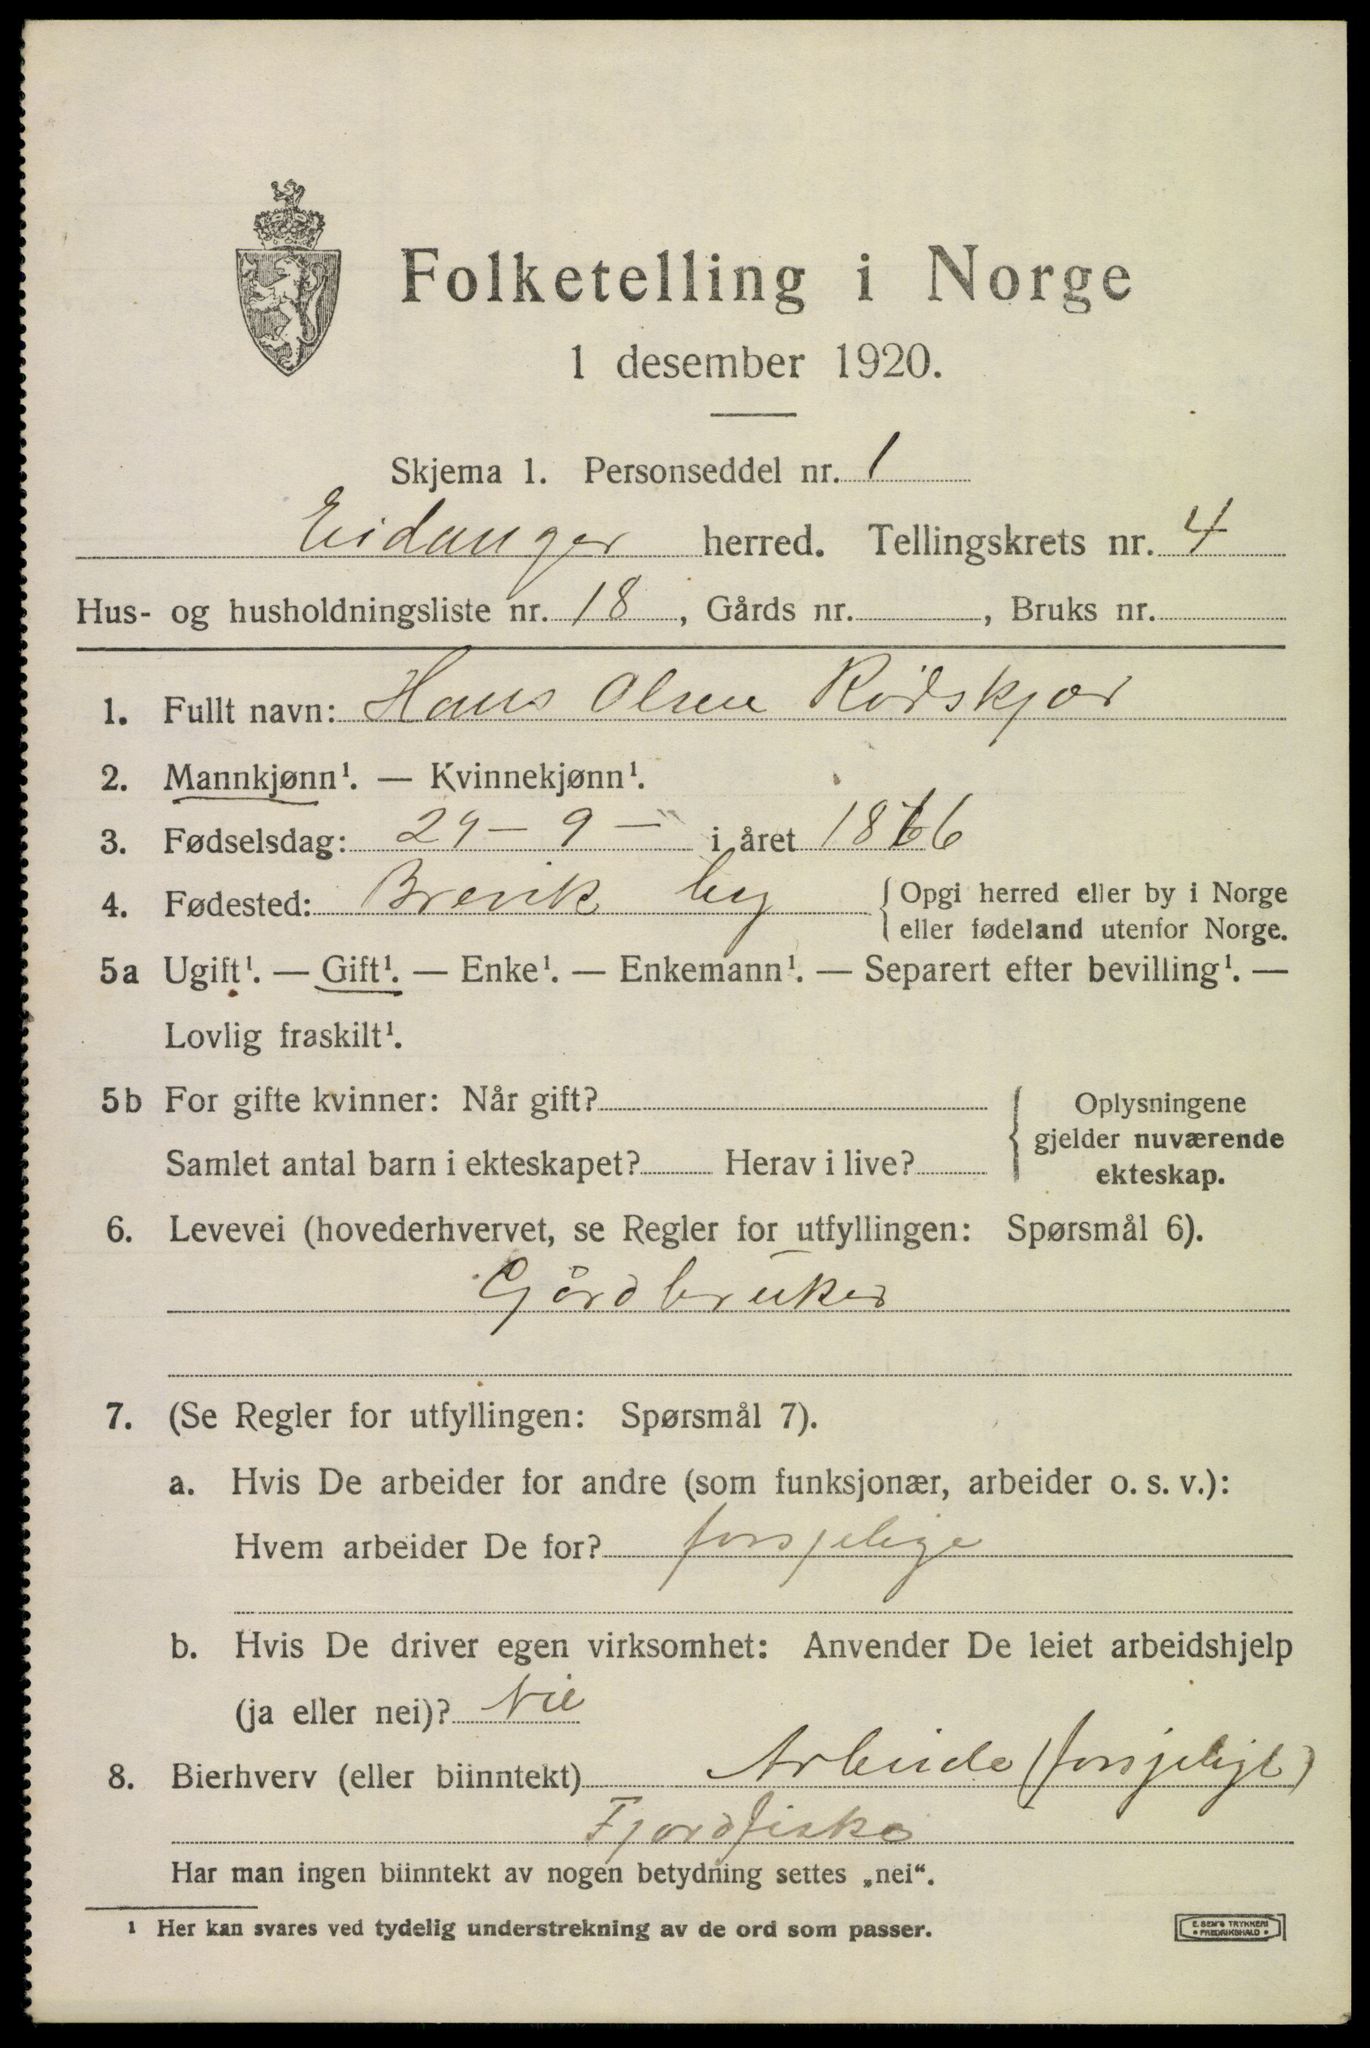 Folketelling i Norge
1 desember 1920.
Skjema 1. Personseddel nr. 1
Eidanger herred. Tellingskrets nr. 4
Hus- og husholdningsliste nr. 18, Gårds nr. , Bruks nr.
1. Fullt navn: Hans Olsen Rødskjær
2. Mannkjønn¹. — Kvinnekjønn¹.
3. Fødselsdag: 29 – 9 – i året 1866
4. Fødested: Brevik by { Opgi herred eller by i Norge
eller fødeland utenfor Norge.
5a Ugift¹. — Gift¹. — Enke¹. — Enkemann¹. — Separert efter bevilling¹. —
Lovlig fraskilt¹.
5b For gifte kvinner: Når gift?
Samlet antal barn i ekteskapet? Herav i live?
{ Oplysningene
gjelder nuværende
ekteskap.
6. Levevei (hovederhvervet, se Regler for utfyllingen: Spørsmål 6).
Gårdbruker
7. (Se Regler for utfyllingen: Spørsmål 7).
a. Hvis De arbeider for andre (som funksjonær, arbeider o. s. v.):
Hvem arbeider De for? forsjelige
b. Hvis De driver egen virksomhet: Anvender De leiet arbeidshjelp
(ja eller nei)? Nie
8. Bierhverv (eller biinntekt) Arbeide (forsjelige)
Fjordfiske
Har man ingen biinntekt av nogen betydning settes „nei“.
¹ Her kan svares ved tydelig understrekning av de ord som passer.
E. SEM'S TRYKKERI
• FREDRIKSHALD •